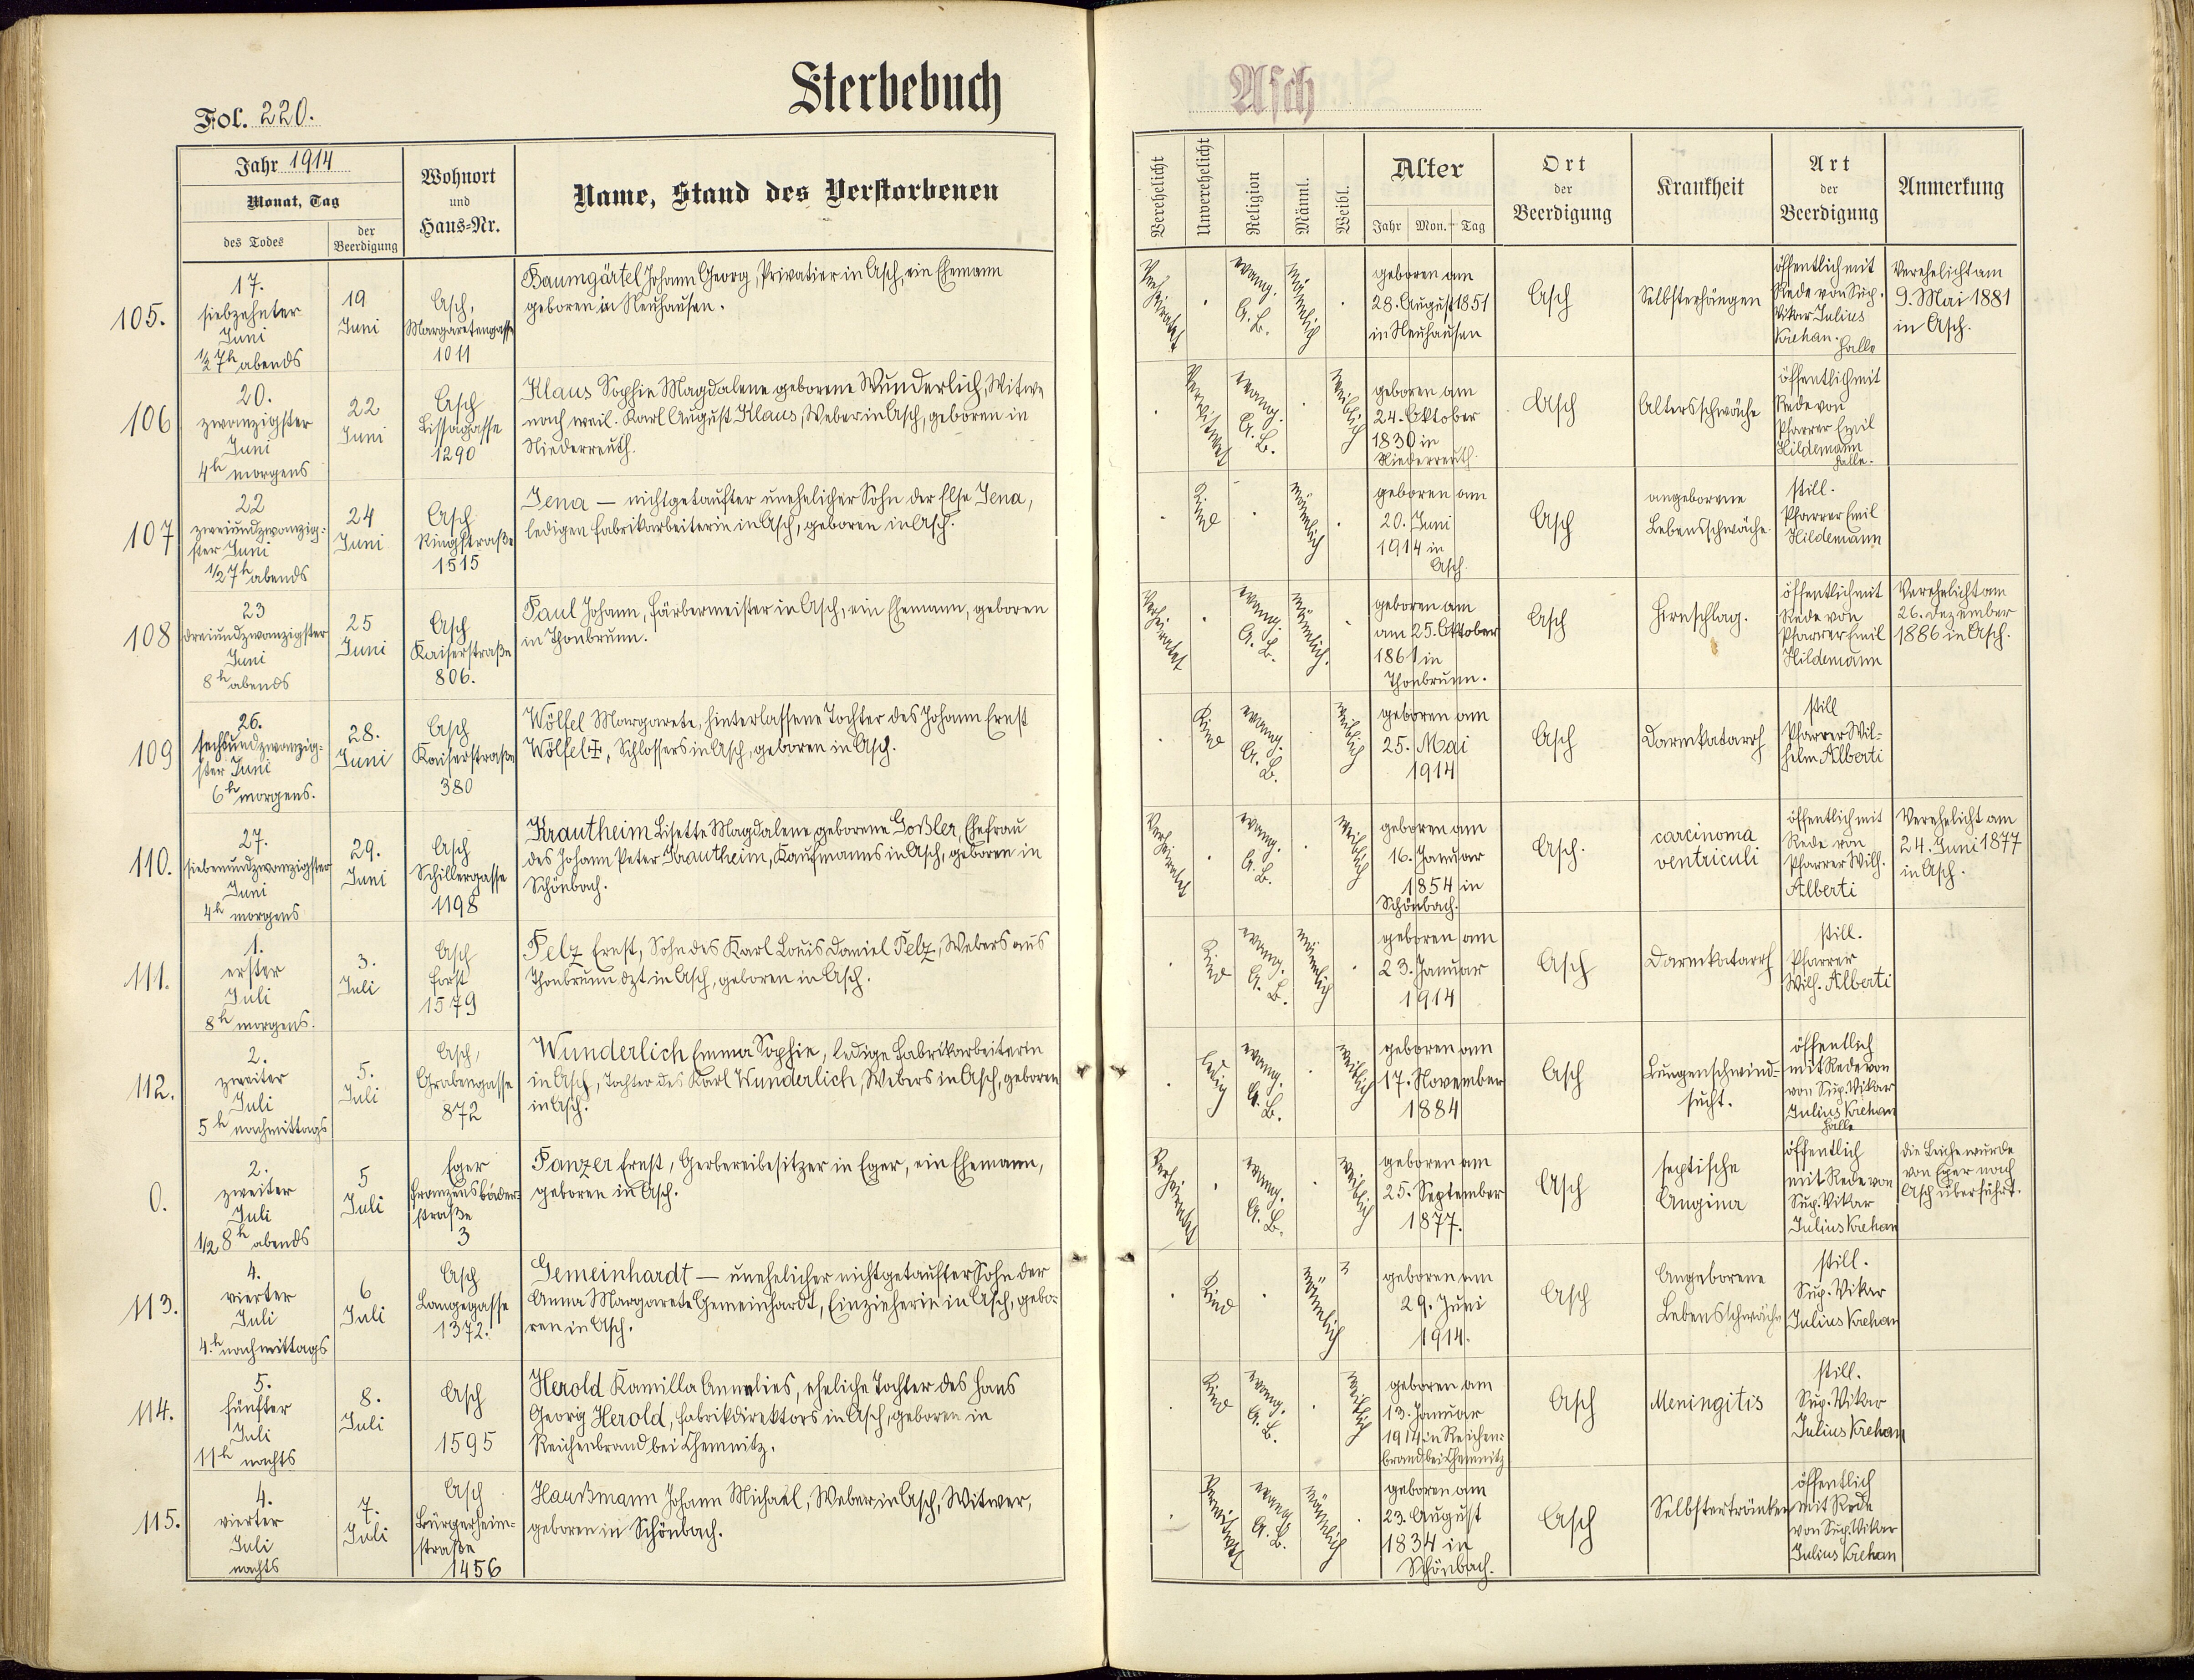 Sterbebuch Asch
Fol. 220.
Jahr 1914
Monat, Tag
des Todes
der Beerdigung
Wohnort
und
Haus-Nr.
Name, Stand des Verstorbenen
Verehelicht
Unverehelicht
Religion
Männl.
Weibl.
Alter
Jahr Mon. Tag
Ort
der
Beerdigung
Krankheit
Art
der
Beerdigung
Anmerkung
105.
17.
siebzehnter
Juni
1/2 7h abends
19
Juni
Asch,
Margaretengasse
1011
Baumgärtel Johann Georg, Privatier in Asch, ein Ehemann
geboren in Neuhausen.
Verheiratet
evang.
A. B.
männlich
geboren am
28. August 1851
in Neuhausen
Asch
Selbsterhängen
öffentlich mit
Rede von Sup.
Vikar Julius
Krehan.
Halle
Verehelicht am
9. Mai 1881
in Asch.
106
20.
zwanzigster
Juni
4h morgens
22
Juni
Asch
Lissagasse
1290
Klaus Sophie Magdalene geborene Wunderlich, Witwe
nach weil. Karl August Klaus, Weber in Asch, geboren in
Niederreuth.
Verwitwet
evang.
A. B.
weiblich
geboren am
24. Oktober
1830 in
Niederreuth.
Asch
Altersschwäche
öffentlich mit
Rede von
Pfarrer Emil
Hildemann
Halle.
107
22
zweiundzwanzig-
ster Juni
1/2 7h abends
24
Juni
Asch
Ringstraße
1515
Jena — nichtgetaufter unehelicher Sohn der Else Jena,
ledigen Fabrikarbeiterin in Asch, geboren in Asch.
Kind
männlich
geboren am
20. Juni
1914 in
Asch.
Asch
angeborene
Lebensschwäche
still.
Pfarrer Emil
Hildemann
108
23
dreiundzwanzigster
Juni
8h abends
25
Juni
Asch
Kaiserstraße
806.
Paul Johann, Färbermeister in Asch, ein Ehemann, geboren
in Thonbrunn.
Verheiratet
evang.
A. B.
männlich.
geboren am
am 25. Oktober
1861 in
Thonbrunn.
Asch
Hirnschlag.
öffentlich mit
Rede von
Pfarrer Emil
Hildemann
Verehelicht am
26. Dezember
1886 in Asch.
109
26.
sechsundzwanzig-
ster Juni
6h morgens.
28.
Juni
Asch
Kaiserstraße
380
Wölfel Margarete, hinterlassene Tochter des Johann Ernst
Wölfel, Schlossers in Asch, geboren in Asch.
Kind
evang.
A. B.
weiblich
geboren am
25. Mai
1914
Asch
Darmkatarrh
still
Pfarrer Wil-
helm Alberti
110.
27.
siebenundzwanzigster
Juni
4h morgens
29.
Juni
Asch
Schillergasse
1198
Krautheim Lisette Magdalene geborene Goßler, Ehefrau
des Johann Peter Krautheim, Kaufmanns in Asch, geboren in
Schönbach.
Verheiratet
evang.
A. B.
weiblich
geboren am
16. Januar
1854 in
Schönbach.
Asch.
carcinoma
ventriculi
öffentlich mit
Rede von
Pfarrer Wilh.
Alberti
Verehelicht am
24. Juni 1877
in Asch.
111.
1.
erster
Juli
8h morgens.
3.
Juli
Asch
Forst
1579
Pelz Ernst, Sohn des Karl Louis Daniel Pelz, Webers aus
Thonbrunn dzt in Asch, geboren in Asch.
Kind
evang.
A. B.
männlich
geboren am
23. Januar
1914
Asch
Darmkatarrh
still.
Pfarrer
Wilh. Alberti
112.
2.
zweiter
Juli
5h nachmittags
5.
Juli
Asch,
Grabengasse
872
Wunderlich Emma Sophie, ledige Fabrikarbeiterin
in Asch, Tochter des Karl Wunderlich, Webers in Asch, geboren
in Asch.
ledig
evang.
A. B.
weiblich
geboren am
17. November
1884
Asch
Lungenschwind-
sucht.
öffentlich
mit Rede von
von Sup. Vikar
Julius Krehan
Halle
0.
2.
zweiter
Juli
1/2 8h abends
5
Juli
Eger
Franzensbäder-
straße
3
Panzer Ernst, Gerbereibesitzer in Eger, ein Ehemann,
geboren in Asch.
Verheiratet
evang.
A. B.
weiblich
geboren am
25. September
1877.
Asch
septische
Angina
öffentlich
mit Rede von
Sup. Vikar
Julius Krehan
Die Leiche wurde
von Eger nach
Asch überführt.
113.
4.
vierter
Juli
4.h nachmittags
6
Juli
Asch
Langegasse
1372.
Gemeinhardt — unehelicher nichtgetaufter Sohn der
Anna Margarete Gemeinhardt, Einzieherin in Asch, gebo-
ren in Asch.
Kind
männlich
geboren am
29. Juni
1914.
Asch
Angeborene
Lebensschwäche
still.
Sup. Vikar
Julius Krehan
114.
5.
fünfter
Juli
11h nachts
8.
Juli
Asch
1595
Herold Kamilla Annelies, eheliche Tochter des Hans
Georg Herold, Fabrikdirektors in Asch, geboren in
Reichenbrand bei Chemnitz.
Kind
evang.
A. B.
weiblich
geboren am
13. Januar
1914 in Reichen-
brand bei Chemnitz
Asch
Meningitis
still.
Sup. Vikar
Julius Krehan
115.
4.
vierter
Juli
nachts
7.
Juli
Asch
Bürgerheim-
straße
1456
Haußmann Johann Michael, Weber in Asch, Witwer,
geboren in Schönbach.
Verwitwet
evang.
A. B.
männlich
geboren am
23. August
1834 in
Schönbach.
Asch
Selbstertränken
öffentlich
mit Rede
von Sup. Vikar
Julius Krehan